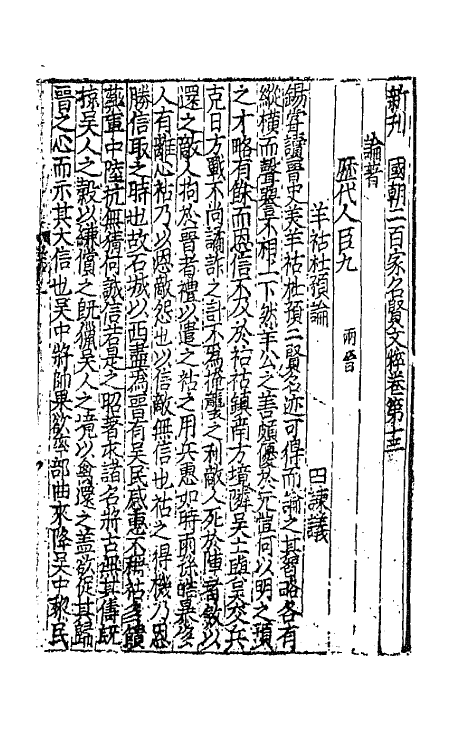 新刊　國朝二百家名賢文粹卷第十三
論著
歷代人臣九　兩晉
羊祜杜預論　田諫議
錫嘗讀晉史羊祜杜預二賢名迹可得而論之其智略各有
縱橫而聲器不相上下然羊公之善頗優於元凱何以明之預
之才略有餘而恩信不及於祜祜鎮南方境隣吳土與吳交兵
克日方戰不尚譎詐之計不為掩襲之利敵人死於陣者斂以
還之敵人拘於晉者禮以遣之祜之用兵惠如時雨孫皓暴
人有離心祜乃以恩敵怨也以信敵無信也祜之得機乃恩
勝信取之時也故石城以西盡為晉有吳民感惠不稱祜名饋
藥軍中陸抗無猜何誠信若是之昭著求諸名將古無其儔旣
掠吳人之穀以縑償之旣獵吳人之境以禽還之蓋欲從其歸
晉之心而示其大信也吳中將帥果欲率部曲來降吳中黎民